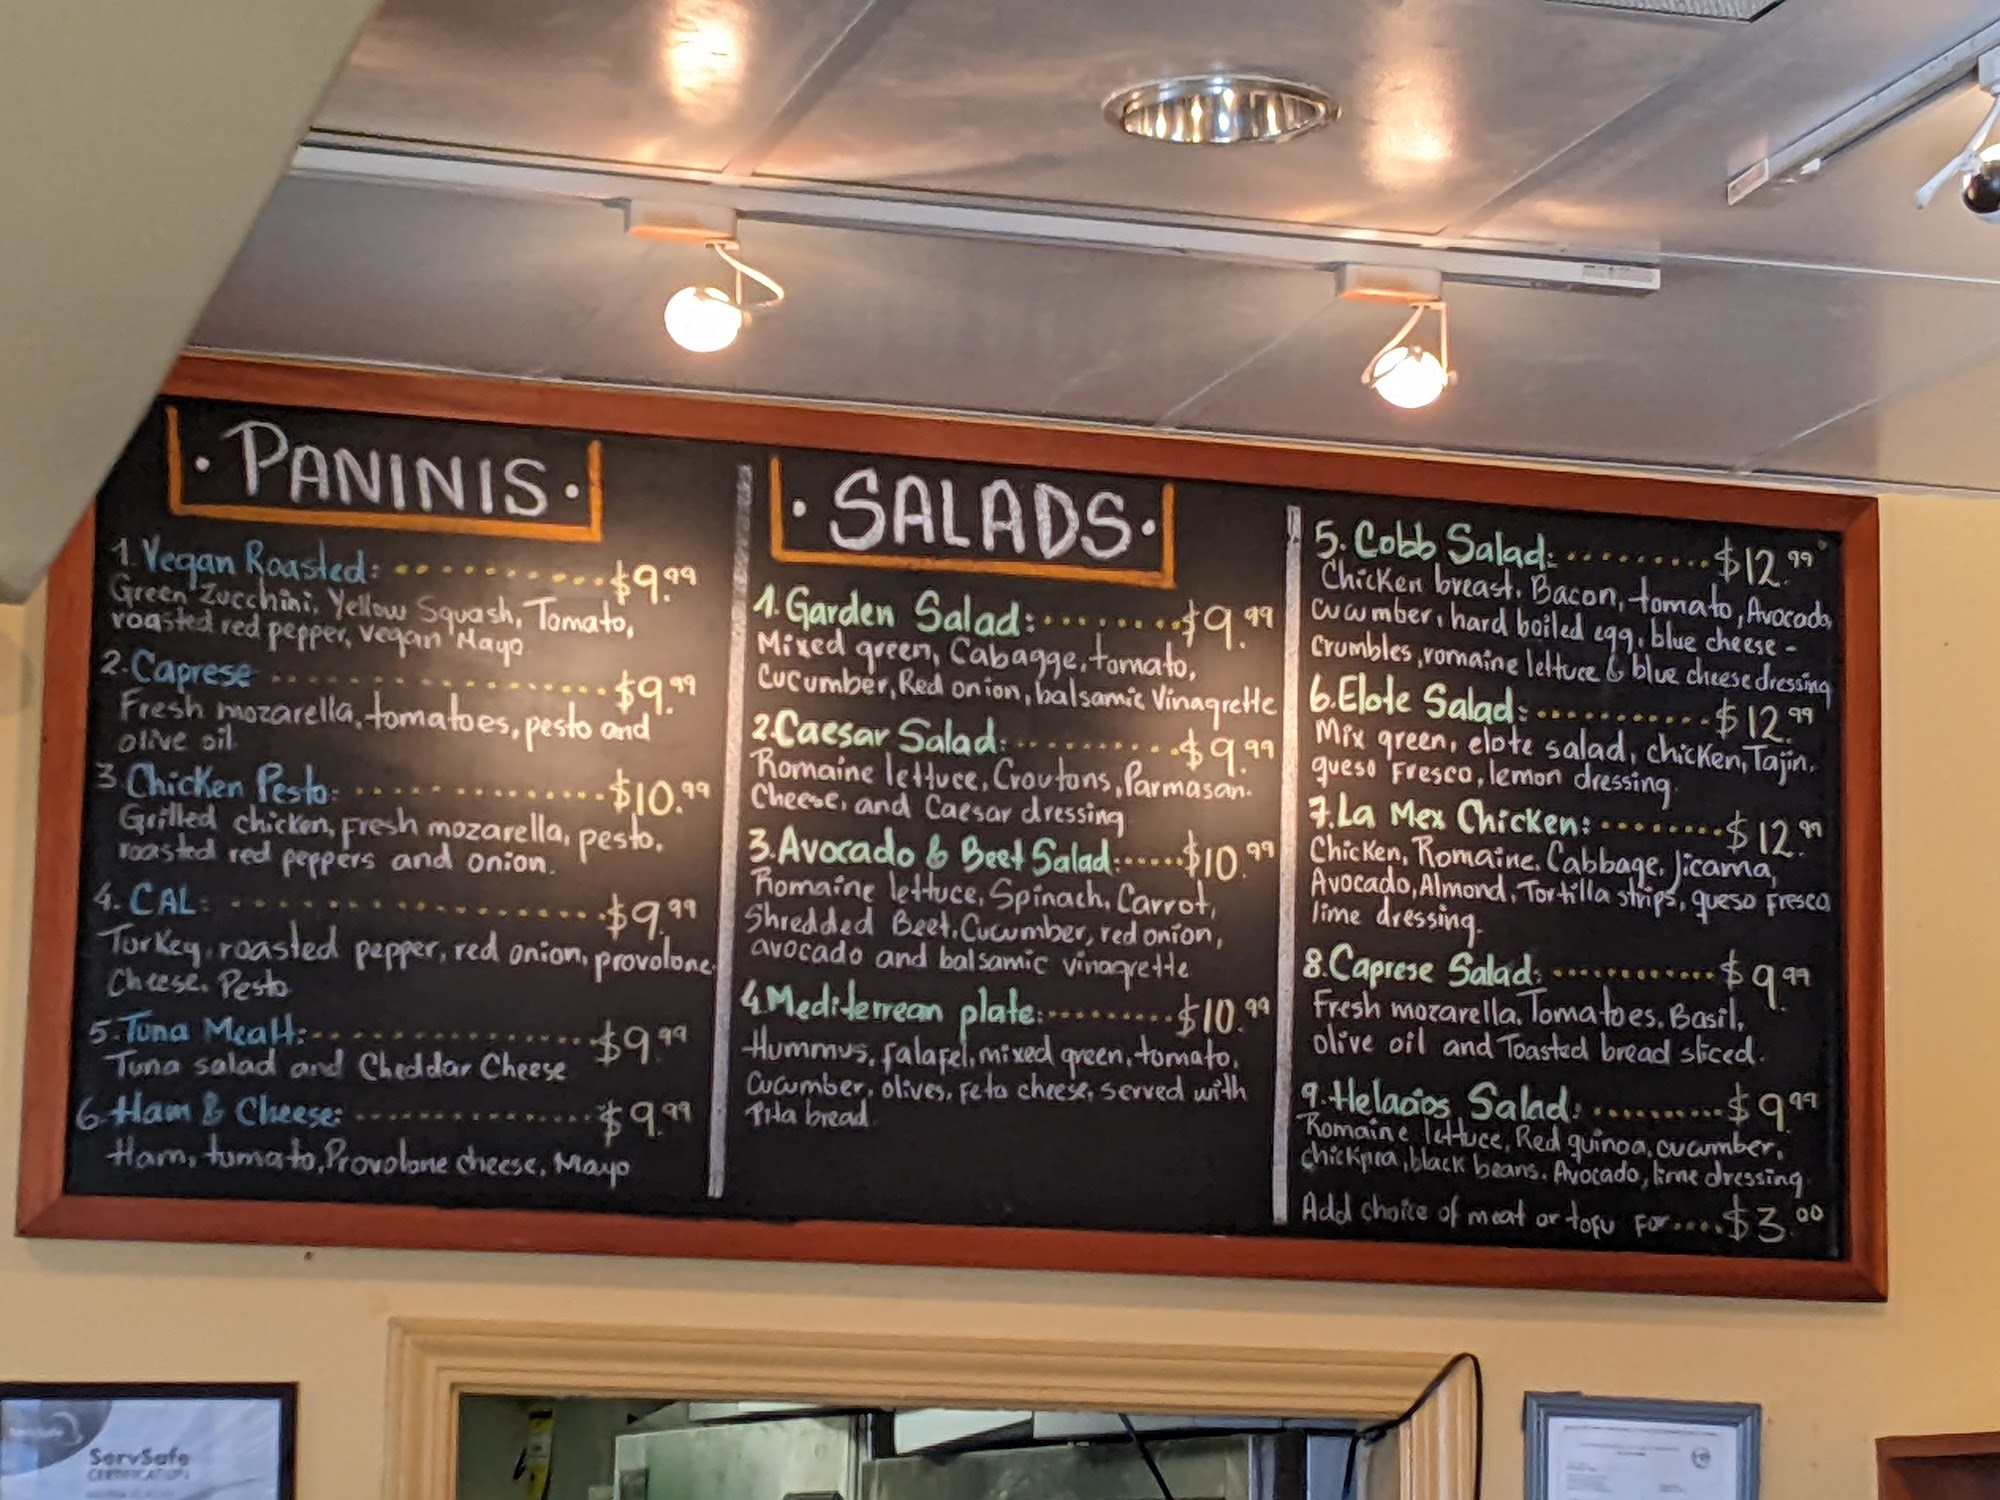 · PANINIS ·
1. Vegan Roasted: $9.99
Green Zucchini, Yellow Squash, Tomato,
roasted red pepper, vegan Mayo
2. Caprese $9.99
Fresh mozarella, tomatoes, pesto and
olive oil
3 Chicken Pesto: $10.99
Grilled chicken, fresh mozarella, pesto,
roasted red peppers and onion.
4. CAL: $9.99
Turkey, roasted pepper, red onion, provolone
Cheese, Pesto
5. Tuna Mealt: $9.99
Tuna salad and Cheddar Cheese
6. Ham & Cheese: $9.99
Ham, tumato, Provolone cheese, Mayo
· SALADS ·
1. Garden Salad: $9.99
Mixed green, Cabagge, tomato,
Cucumber, Red onion, balsamic Vinagrette
2. Caesar Salad: $9.99
Romaine lettuce, Croutons, Parmasan
Cheese, and Caesar dressing
3. Avocado & Beet Salad: $10.99
Romaine lettuce, Spinach, Carrot,
Shredded Beet, Cucumber, red onion,
avocado and balsamic vinagrette
4. Mediterrean plate: $10.99
Hummus, falafel, mixed green, tomato,
Cucumber, olives, feta cheese, served with
Pita bread
5. Cobb Salad: $12.99
Chicken breast, Bacon, tomato, Avocado,
cucumber, hard boiled egg, blue cheese -
crumbles, romaine lettuce & blue cheese dressing
6. Elote Salad: $12.99
Mix green, elote salad, chicken, Tajin,
queso Fresco, lemon dressing
7. La Mex Chicken: $12.99
Chicken, Romaine, Cabbage, Jicama,
Avocado, Almond, Tortilla strips, queso Fresco
lime dressing.
8. Caprese Salad: $9.99
Fresh mozarella, Tomatoes, Basil,
olive oil and Toasted bread sliced.
9. Helacios Salad: $9.99
Romaine lettuce, Red quinoa, cucumber,
chickpea, black beans, Avocado, lime dressing
Add choice of meat or tofu for.... $3.00
ServSafe
CERTIFICATION